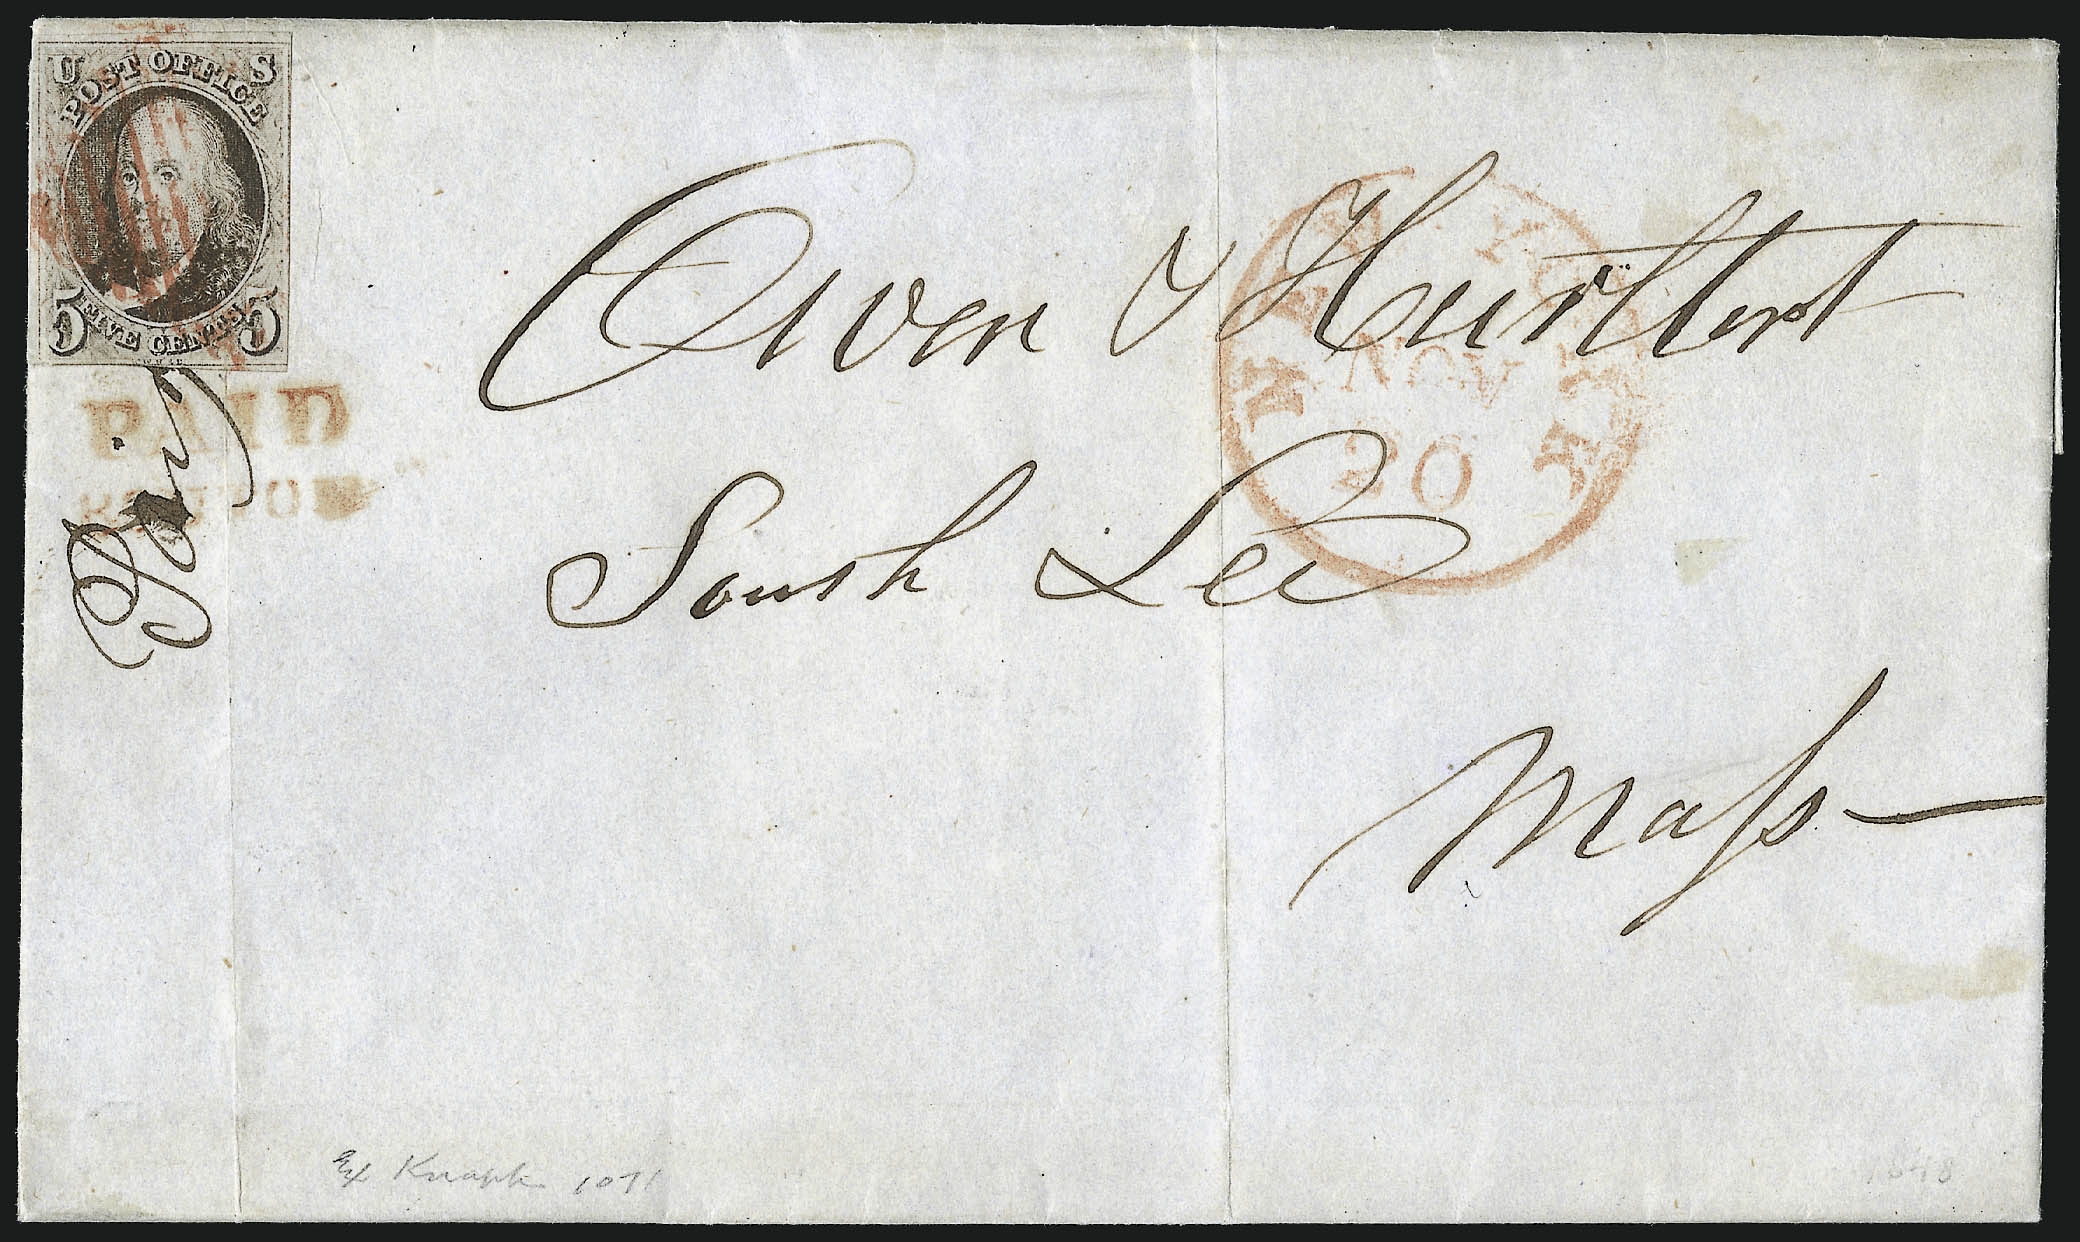 U S
POST OFFICE
5 FIVE CENTS 5
PAID
Paid
NEW YORK
NOV
20
Owen & Hurlbert
South Lee
Maſs
Ex Knapp 1071
1848